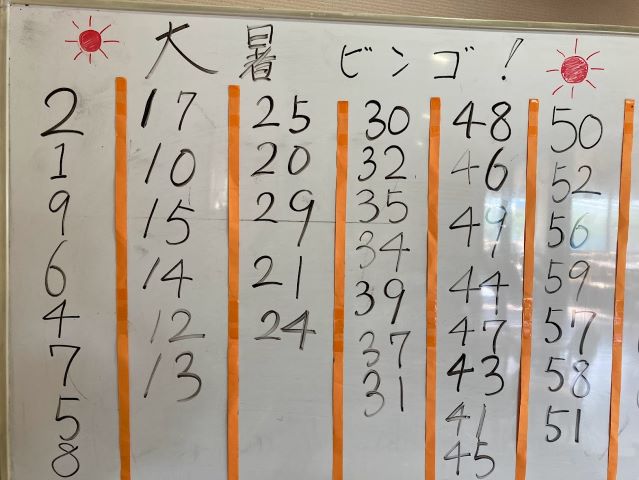 大暑ビンゴ!
2 17 25 30 48 50
1 10 20 32 46 52
9 15 29 35 49 56
6 14 21 34 44 59
4 12 24 39 47 57
7 13 37 43 58
5 31 41 51
8 45